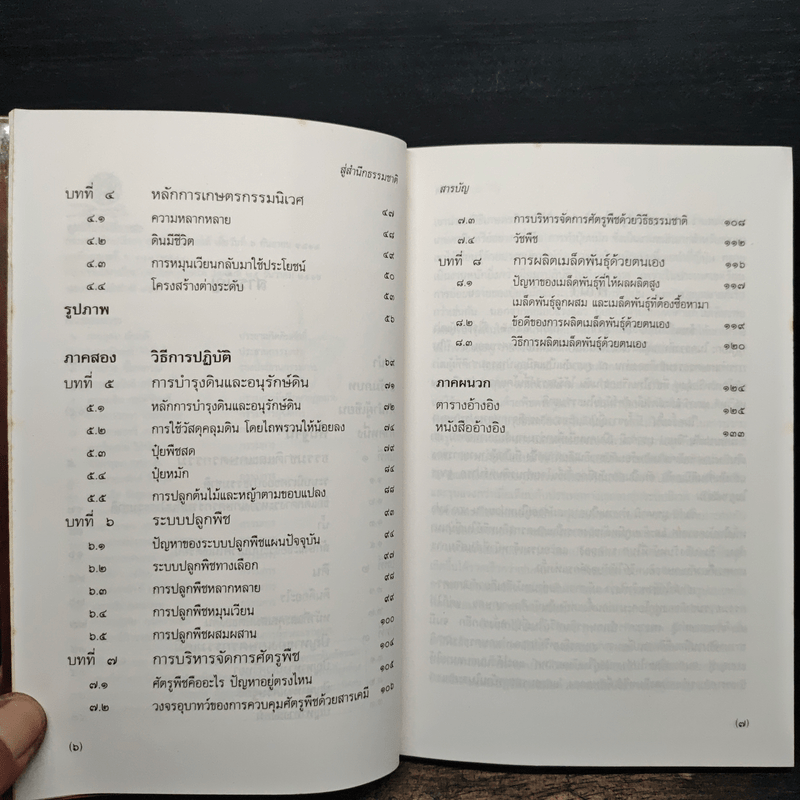 สู่สำนึกธรรมชาติ
บทที่ ๔ หลักการเกษตรกรรมนิเวศ ๔๗
๔.๑ ความหลากหลาย ๔๘
๔.๒ ดินมีชีวิต ๔๙
๔.๓ การหมุนเวียนกลับมาใช้ประโยชน์ ๕๐
๔.๔ โครงสร้างต่างระดับ ๕๓
รูปภาพ ๕๖
ภาคสอง วิธีการปฏิบัติ ๖๙
บทที่ ๕ การบำรุงดินและอนุรักษ์ดิน ๗๑
๕.๑ หลักการบำรุงดินและอนุรักษ์ดิน ๗๒
๕.๒ การใช้วัสดุคลุมดิน โดยไถพรวนให้น้อยลง ๗๔
๕.๓ ปุ๋ยพืชสด ๗๙
๕.๔ ปุ๋ยหมัก ๘๔
๕.๕ การปลูกต้นไม้และหญ้าตามขอบแปลง ๘๘
บทที่ ๖ ระบบปลูกพืช ๙๓
๖.๑ ปัญหาของระบบปลูกพืชแผนปัจจุบัน ๙๔
๖.๒ ระบบปลูกพืชทางเลือก ๙๗
๖.๓ การปลูกพืชหลากหลาย ๙๘
๖.๔ การปลูกพืชหมุนเวียน ๙๙
๖.๕ การปลูกพืชผสมผสาน ๑๐๐
บทที่ ๗ การบริหารจัดการศัตรูพืช ๑๐๔
๗.๑ ศัตรูพืชคืออะไร ปัญหาอยู่ตรงไหน ๑๐๕
๗.๒ วงจรอุบาทว์ของการควบคุมศัตรูพืชด้วยสารเคมี ๑๐๖
(๖)
สารบัญ
๗.๓ การบริหารจัดการศัตรูพืชด้วยวิธีธรรมชาติ ๑๐๘
๗.๔ วัชพืช ๑๑๒
บทที่ ๘ การผลิตเมล็ดพันธุ์ด้วยตนเอง ๑๑๖
๘.๑ ปัญหาของเมล็ดพันธุ์ที่ให้ผลผลิตสูง ๑๑๗
เมล็ดพันธุ์ลูกผสม และเมล็ดพันธุ์ที่ต้องซื้อหามา
๘.๒ ข้อดีของการผลิตเมล็ดพันธุ์ด้วยตนเอง ๑๑๙
๘.๓ วิธีการผลิตเมล็ดพันธุ์ด้วยตนเอง ๑๒๐
ภาคผนวก ๑๒๔
ตารางอ้างอิง ๑๒๕
หนังสืออ้างอิง ๑๓๓
(๗)